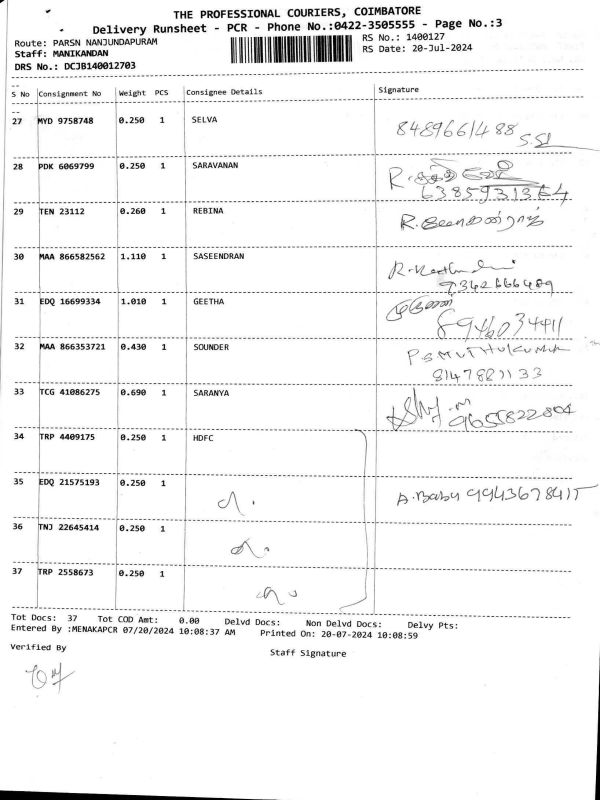 THE PROFESSIONAL COURIERS, COIMBATORE
Delivery Runsheet - PCR - Phone No.:0422-3505555 - Page No.:3
Route: PARSN NANJUNDAPURAM
RS No.: 1400127
Staff: MANIKANDAN
RS Date: 20-Jul-2024
DRS No.: DCJB140012703
S No Consignment No Weight PCS Consignee Details Signature
27 MYD 9758748 0.250 1 SELVA 8489661488
28 PDK 6069799 0.250 1 SARAVANAN R.
6385931364
29 TEN 23112 0.260 1 REBINA R.
30 MAA 866582562 1.110 1 SASEENDRAN
9342666489
31 EDQ 16699334 1.010 1 GEETHA
8946034411
32 MAA 866353721 0.430 1 SOUNDER PSMUTHUKUMAR
8147881133
33 TCG 41086275 0.690 1 SARANYA
9655822804
34 TRP 4409175 0.250 1 HDFC
35 EDQ 21575193 0.250 1 A.Babu 9943678415
36 TNJ 22645414 0.250 1
37 TRP 2558673 0.250 1
Tot Docs: 37 Tot COD Amt: 0.00 Delvd Docs: Non Delvd Docs: Delvy Pts:
Entered By :MENAKAPCR 07/20/2024 10:08:37 AM Printed On: 20-07-2024 10:08:59
Verified By Staff Signature